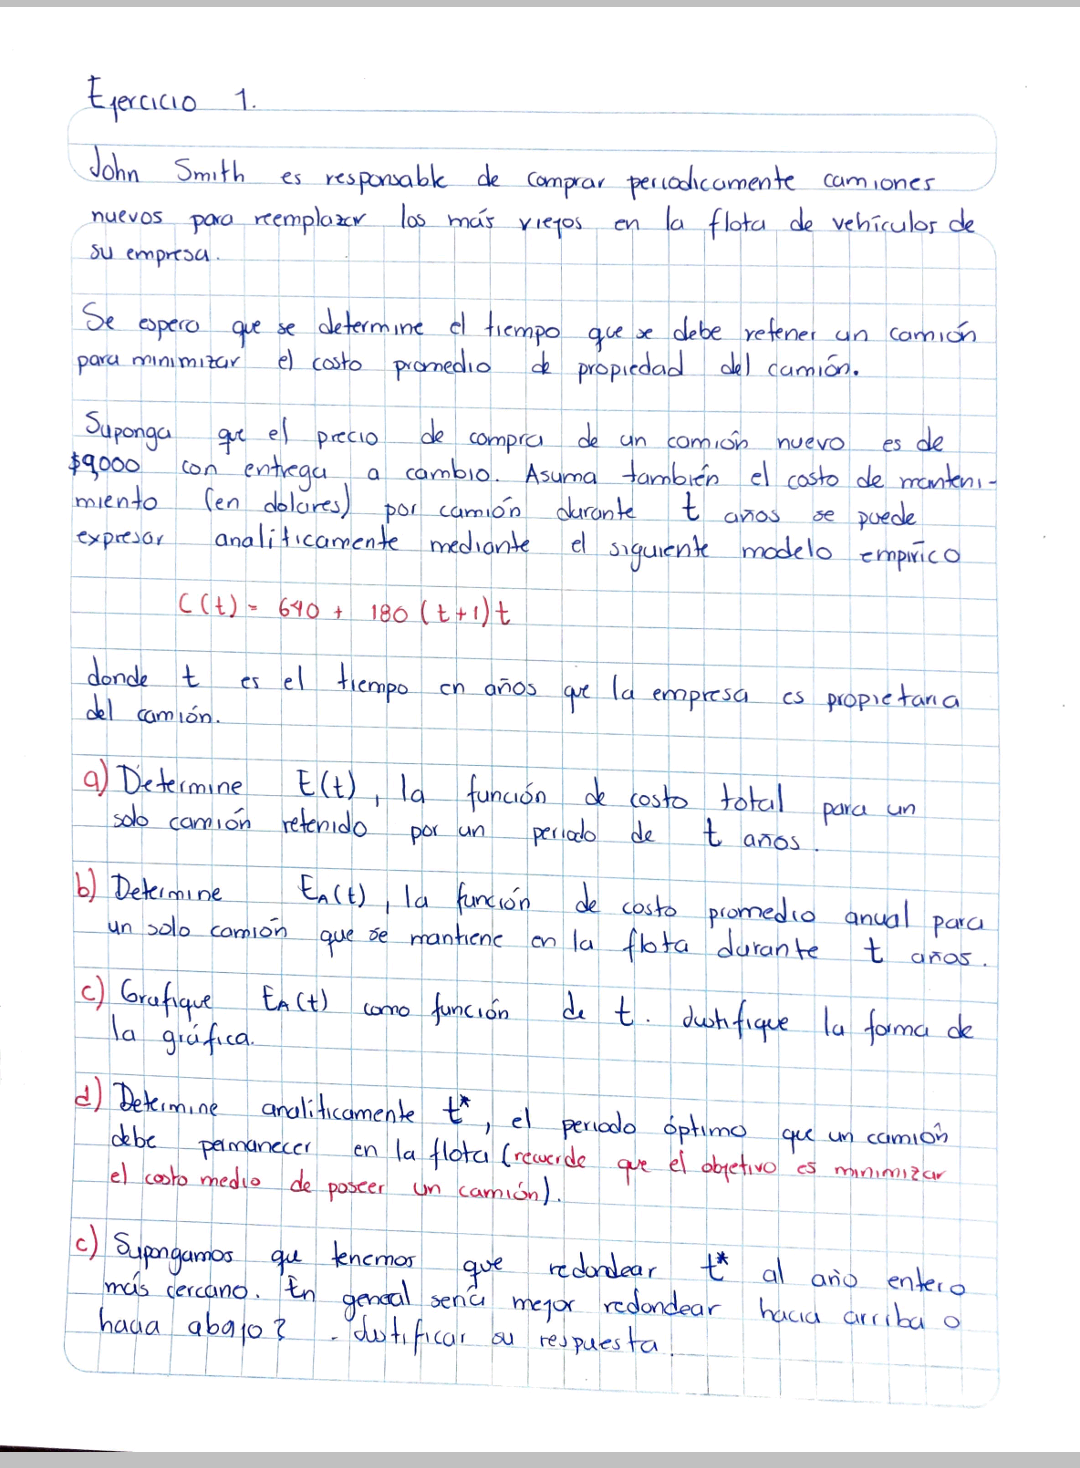 Ejercicio 1.
John Smith es responsable de comprar periodicamente camiones
nuevos para reemplazar los más viejos en la flota de vehículos de
su empresa.
Se espera que se determine el tiempo que se debe retener un camión
para minimizar el costo promedio de propiedad del camión.
Suponga que el precio de compra de un camión nuevo es de
$9,000 con entrega a cambio. Asuma también el costo de manteni-
miento (en dolares) por camión durante t años se puede
expresar analiticamente mediante el siguiente modelo empírico
C(t) = 640 + 180 (t+1)t
donde t es el tiempo en años que la empresa es propietaria
del camión.
a) Determine E(t), la función de costo total para un
solo camión retenido por un periodo de t años.
b) Determine EA(t), la función de costo promedio anual para
un solo camión que se mantiene en la flota durante t años.
c) Grafique EA(t) como función de t. Justifique la forma de
la gráfica.
d) Determine analiticamente t*, el periodo óptimo que un camión
debe permanecer en la flota (recuerde que el objetivo es minimizar
el costo medio de poseer un camión).
c) Supongamos que tenemos que redondear t* al año entero
más cercano. En general sería mejor redondear hacia arriba o
hacia abajo? . Justificar su respuesta.